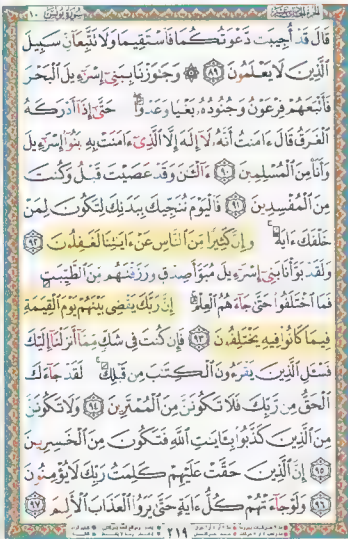 سورة يونس ١٠
قال قد أجيبت دعوتكما فاستقيما ولا تتبعان سبيل
الذين لا يعلمون ٨٩ ۞ وجوزنا ببني إسرءيل البحر
فأتبعهم فرعون وجنوده بغيا وعدوا حتى إذا أدركه
الغرق قال ءامنت أنه لا إله إلا الذي ءامنت به بنوا إسرءيل
وأنا من المسلمين ٩٠ ءآلـٔن وقد عصيت قبل وكنت
من المفسدين ٩١ فاليوم ننجيك ببدنك لتكون لمن
خلفك ءاية وإن كثيرا من الناس عن ءايتنا لغفلون ٩٢
ولقد بوأنا بني إسرءيل مبوأ صدق ورزقنهم من الطيبت
فما اختلفوا حتى جاءهم العلم إن ربك يقضي بينهم يوم القيمة
فيما كانوا فيه يختلفون ٩٣ فإن كنت في شك مما أنزلنا إليك
فسـٔل الذين يقرءون الكتب من قبلك لقد جاءك
الحق من ربك فلا تكونن من الممترين ٩٤ ولا تكونن
من الذين كذبوا بـٔايت الله فتكون من الخسرين
٩٥ إن الذين حقت عليهم كلمت ربك لا يؤمنون
٩٦ ولو جاءتهم كل ءاية حتى يروا العذاب الأليم ٩٧
٢١٩